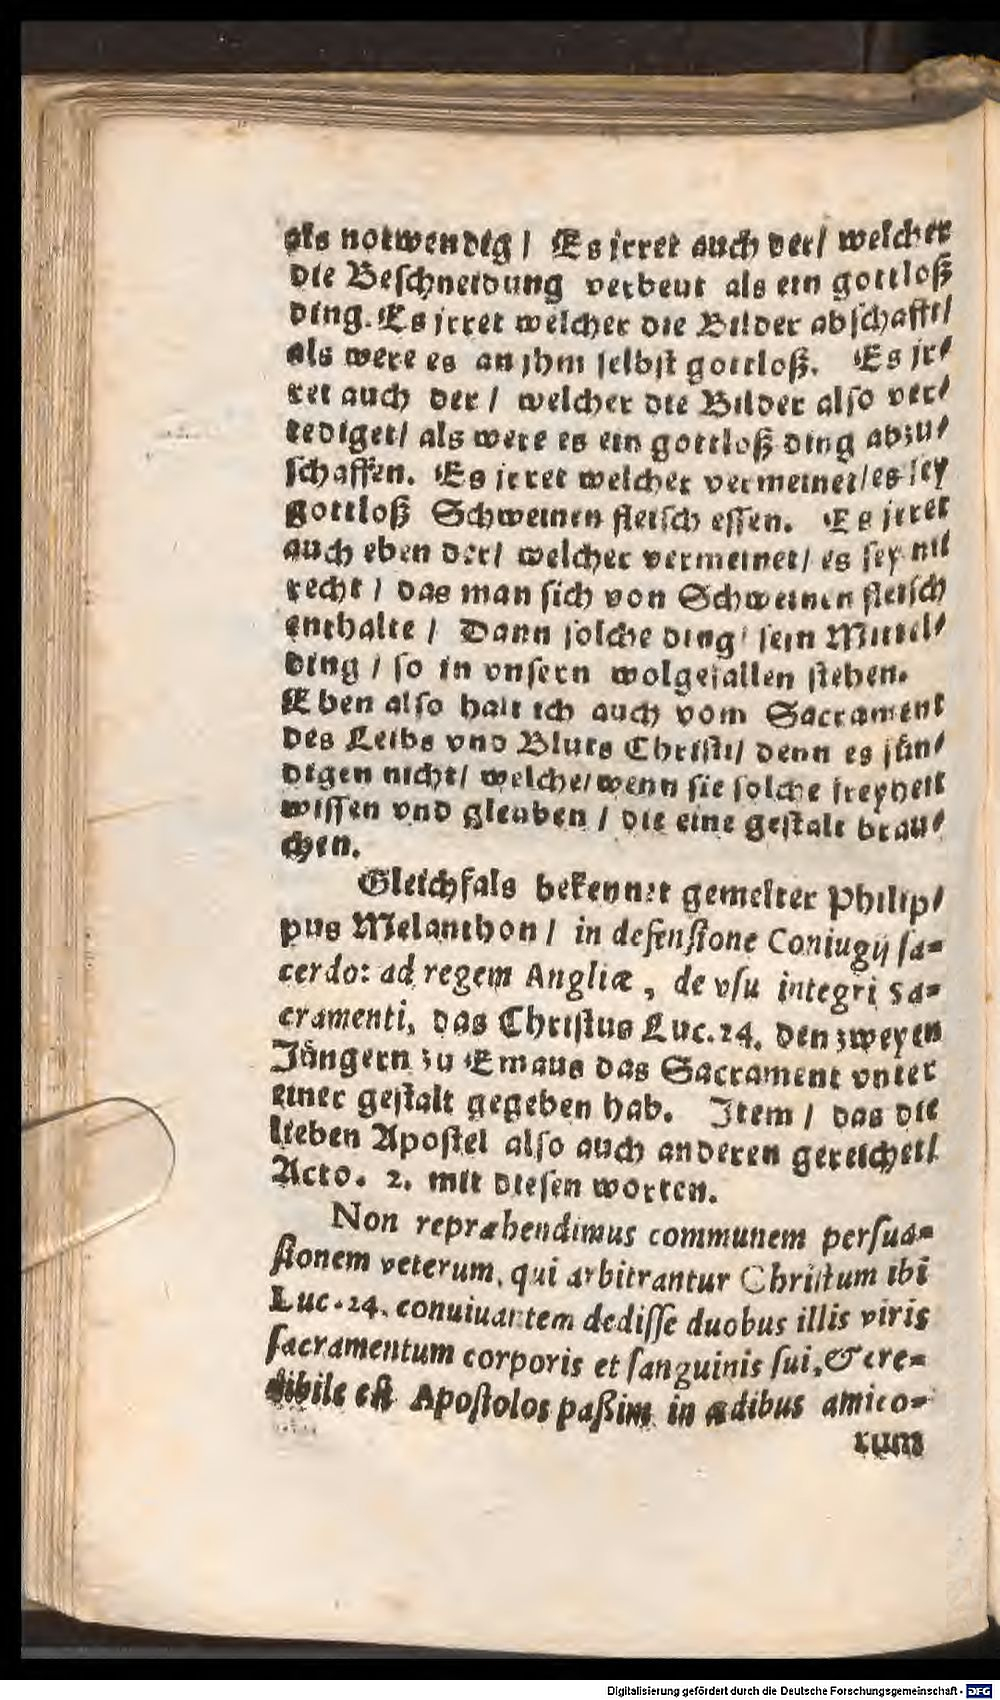 als notwendig / Es jrret auch der / welcher
die Beſchneidung verbeut als ein gottloß
ding. Es jrret welcher die Bilder abſchafft /
als were es an jhm ſelbſt gottloß. Es jr⸗
ret auch der / welcher die Bilder alſo ver⸗
tediget / als were es ein gottloß ding abzu⸗
ſchaffen. Es jrret welcher vermeinet / es ſey
gottloß Schweinen fleiſch eſſen. Es jrret
auch eben der / welcher vermeinet / es ſey nit
recht / das man ſich von Schweinen fleiſch
enthalte / Dann ſolche ding ſein Mittel⸗
ding / ſo in vnſern wolgefallen ſtehen.
Eben alſo halt ich auch vom Sacrament
des Leibs vnd Bluts Chriſti / denn es ſün⸗
digen nicht / welche / wenn ſie ſolche freyheit
wiſſen vnd glauben / die eine geſtalt brau⸗
chen.
Gleichfals bekennet gemelter Philip⸗
pus Melanthon / in defenſione Coniugij ſa-
cerdo: ad regem Angliæ, de vſu integri Sa-
cramenti, das Chriſtus Luc. 24. den zweyen
Jüngern zu Emaus das Sacrament vnter
einer geſtalt gegeben hab. Item / das die
lieben Apoſtel alſo auch anderen gereichet /
Acto. 2. mit dieſen worten.
Non repræhendimus communem perſua-
ſionem veterum, qui arbitrantur Chriſtum ibi
Luc. 24. conuiuantem dediſſe duobus illis viris
ſacramentum corporis et ſanguinis ſui, & cre-
dibile eſt Apoſtolos paßim in ædibus amico-
rum
Digitalisierung gefördert durch die Deutsche Forschungsgemeinschaft - DFG